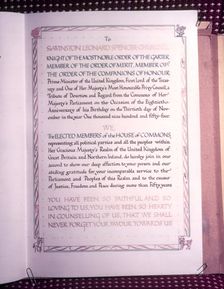 To
SIR WINSTON LEONARD SPENCER-CHURCHILL
KNIGHT OF THE MOST NOBLE ORDER OF THE GARTER
MEMBER OF THE ORDER OF MERIT, MEMBER OF
THE ORDER OF THE COMPANIONS OF HONOUR,
Prime Minister of the United Kingdom, First Lord of the Trea-
sury and One of Her Majesty's Most Honourable Privy Council, a
Tribute of Devotion and Regard from the Commons of Her
Majesty's Parliament on the Occasion of the Eightieth
Anniversary of his Birthday on the Thirtieth day of Nov-
ember in the year One thousand nine hundred and fifty-four.
WE,
The ELECTED MEMBERS of the HOUSE OF COMMONS,
representing all political parties and all the peoples within
Her Gracious Majesty's Realm of the United Kingdom of
Great Britain and Northern Ireland, do hereby join in our
accord to show our deep affection to your person and our
abiding gratitude for your incomparable service to the
Parliament and Peoples of this Realm and to the causes
of Justice, Freedom and Peace during more than fifty years
YOU HAVE BEEN SO FAITHFUL AND SO
LOVING TO US, YOU HAVE BEEN SO HEARTY
IN COUNSELLING OF US, THAT WE SHALL
NEVER FORGET YOUR FAVOUR TOWARDS US